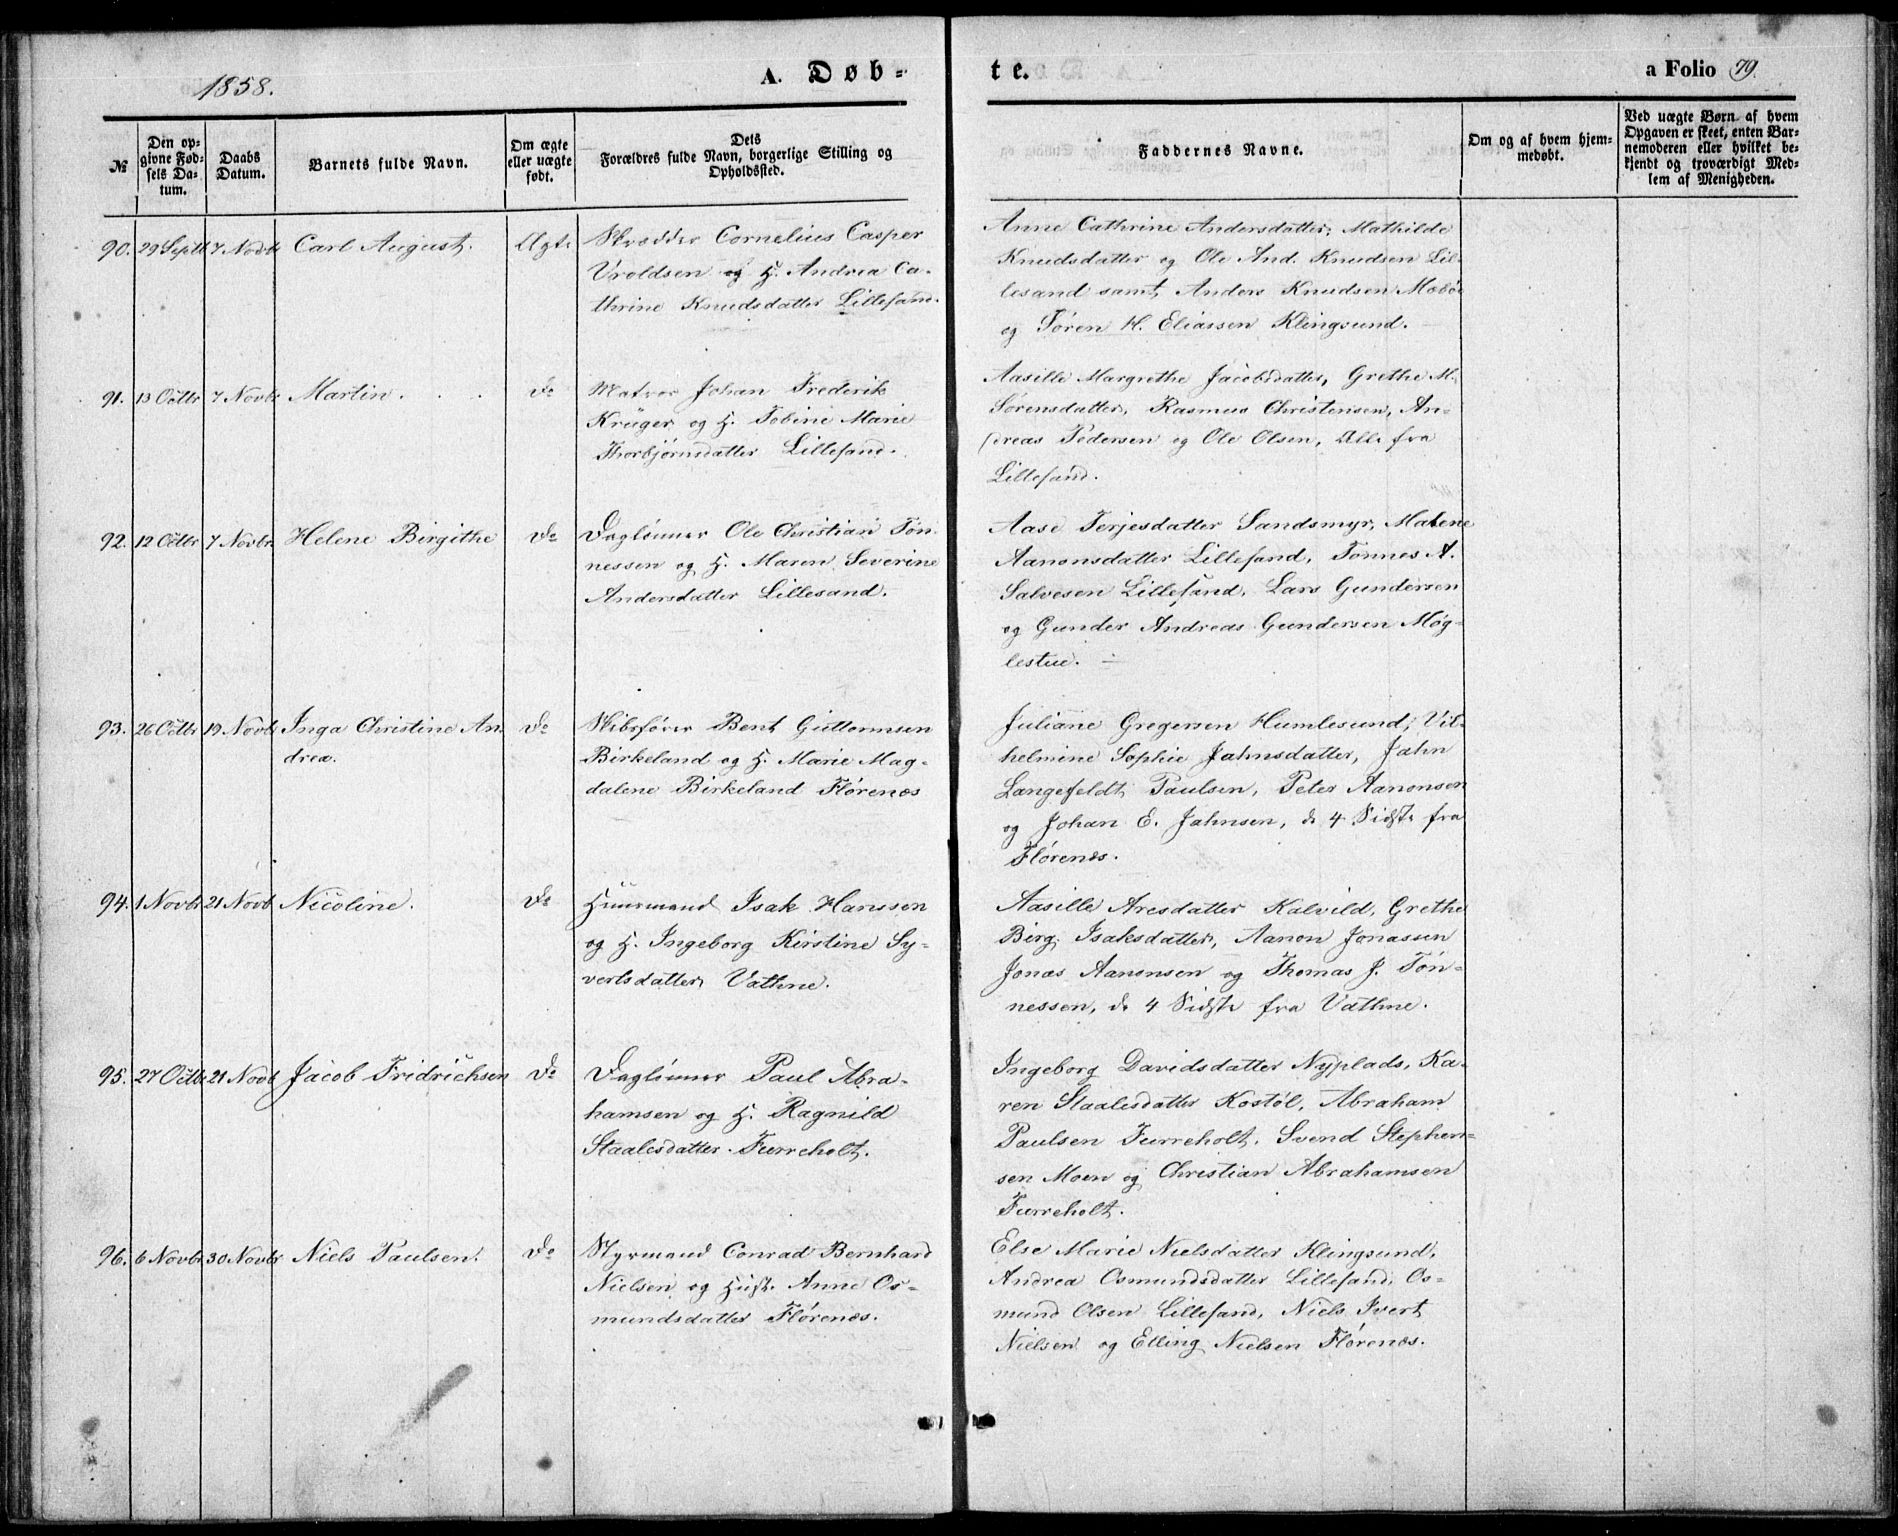 1858.
A. Døb-
te.
a Folio 79.
№
Den op-
givne Fød-
sels Da-
tum.
Daabs
Datum.
Barnets fulde Navn.
Om ægte
eller uægte
født.
Dets
Forældres fulde Navn, borgerlige Stilling og
Opholdssted.
Faddernes Navne.
Om og af hvem hjem-
medøbt.
Ved uægte Børn af hvem
Opgaven er skeet, enten Bar-
nemoderen eller hvilket be-
kjendt og troværdigt Med-
lem af Menigheden.
90. 29 Septb 7 Novbr Carl August. Ægte
Skrædder Cornelius Casper
Vroldsen og H. Andrea Ca-
thrine Knudsdatter Lillesand.
Anne Cathrine Andersdatter, Mathilde
Knudsdatter og Ole And. Knudsen Lil-
lesand samt Anders Knudsen
og Søren H. Eliassen Klingsund.
91. 13 Octbr 7 Novbr Martin. Do
Matros Johan Frederik
Krüger og H. Tobine Marie
Thorbjørnsdatter Lillesand.
Aasille Margrethe Jacobsdatter, Grethe M.
Sørensdatter, Rasmus Christensen, An-
dreas Pedersen og Ole Olsen, Alle fra
Lillesand.
92. 12 Octbr 7 Novbr. Helene Birgithe Do
Daglønner Ole Christian Tøn-
nessen og H. Maren Severine
Andersdatter Lillesand.
Aase Terjesdatter Sandsmyr, Malene
Aanonsdatter Lillesand, Tønnes A.
Salvesen Lillesand, Lars Gundersen
og Gunder Andreas Gundersen Møg-
lestue.
93. 26 Octbr 19 Novbr Inga Christine An-
drea. Do
Skibsfører Bent Guttormsen
Birkeland og H. Marie Mag-
dalene Birkeland Flørenæs
Juliane Gregersen Humlesund, Vil-
helmine Sophie Jahnsdatter, Jahn
Langefeldt Paulsen, Peter Aanonsen
og Johan E. Jahnsen, de 4 Sidste fra
Flørenæs.
94. 1 Novbr 21 Novb Nicoline. Do
Huusmand Isak Hanssen
og H. Ingeborg Kirstine Sy-
vertsdatter Vatne.
Aasille Aresdatter Kalvild, Grethe
Berg. Isaksdatter, Aanon Jonassen
Jonas Aanonsen og Thomas J. Tøn-
nessen, de 4 Sidste fra Vatne.
95. 27 Octbr 21 Novb Jacob Fridrichsen Do
Daglønner Paul Abra-
hamsen og H. Ragnild
Staalesdatter Furreholt.
Ingeborg Davidsdatter Nyplads, Ka-
ren Staalesdatter Kostøl, Abraham
Paulsen Furreholt, Svend Stephen-
sen Moen og Christian Abrahamsen
Furreholt.
96. 6 Novbr 30 Novbr Niels Paulsen. Do
Styrmand Conrad Bernhard
Nielsen og Hust. Anne Os-
mundsdatter Flørenæs.
Else Marie Nielsdatter Klingsund,
Andrea Osmundsdatter Lillesand, Os-
mund Olsen Lillesand, Niels Ivert
Nielsen og Elling Nielsen Flørenæs.